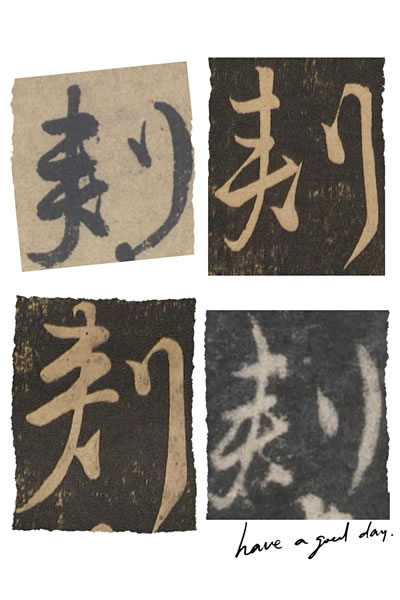 刺
刺
刺
刺
have a good day.